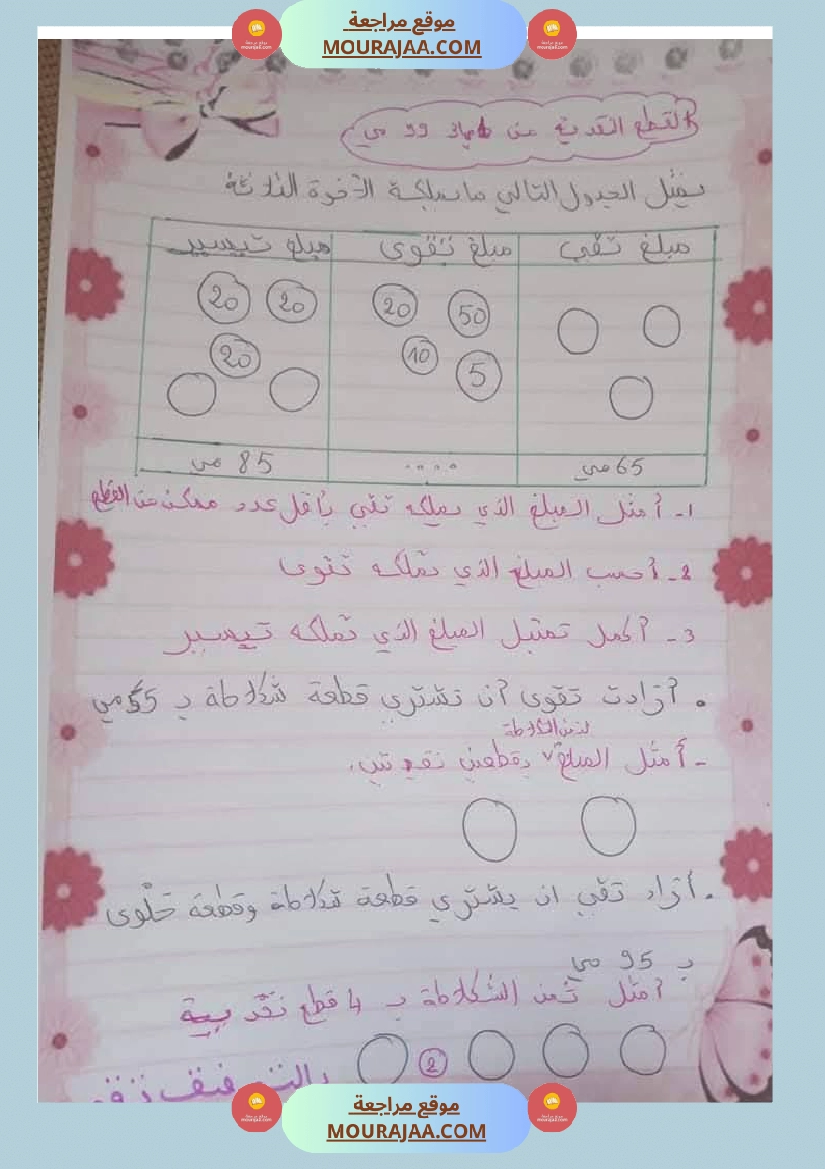 موقع مراجعة
MOURAJAA.COM
القطع النقدية من إلى 99 مي
يمثل الجدول التالي ما يملكه الاخوة الثلاثة
مبلغ تقي
مبلغ تقوى
مبلغ تيسير
20 20
20
20 50
10
5
65 مي
....
85 مي
1- أمثل المبلغ الذي يملكه تقي بأقل عدد ممكن من القطع
2- أحسب المبلغ الذي تملكه تقوى
3- أكمل تمثيل المبلغ الذي تملكه تيسير
أرادت تقوى أن تشتري قطعة شكلاطة بـ 55 مي
- أمثل المبلغ بقطعتين نقديتين.
. أراد تقي ان يشتري قطعة شكلاطة وقطعة حلوى
بـ 95 مي
أمثل ثمن الشكلاطة بـ 4 قطع نقدية
2
بالتوفيق
موقع مراجعة
MOURAJAA.COM